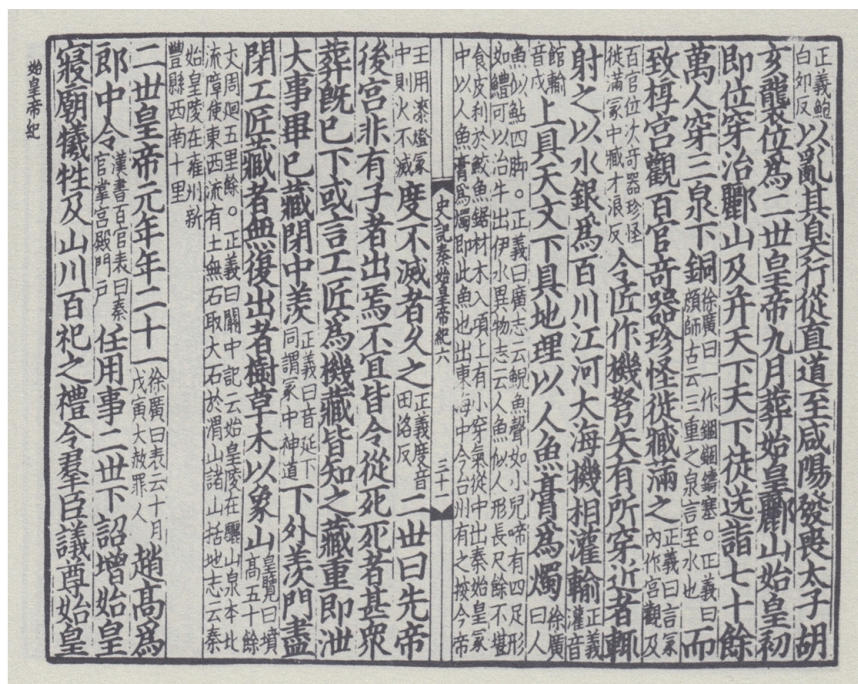 正義鮑白卯反以亂其臭行從直道至咸陽發喪太子胡
亥襲位爲二世皇帝九月葬始皇酈山始皇初
即位穿治酈山及并天下天下徒送詣七十餘
萬人穿三泉下銅徐廣曰一作錮錮鑄塞。正義曰顔師古云三重之泉言至水也而
致椁宮觀百官奇器珍怪徙臧滿之正義曰言冢內作宮觀及
百官位次奇器珍怪徙滿冢中臧才浪反令匠作機弩矢有所穿近者輒
射之以水銀爲百川江河大海機相灌輸正義灌音
館輸音戍上具天文下具地理以人魚膏爲燭徐廣曰人
魚似鮎四脚。正義曰廣志云鯢魚聲如小兒啼有四足形如鱧可以治牛出伊水異物志云人魚似人形長尺餘不堪
食皮利於鮫魚鋸材木入項上有小穿氣從中出秦始皇冢中以人魚膏爲燭即此魚也出東海中今台州有之按今帝
史記秦始皇帝紀六 三十一
王用漆燈冢中則火不滅度不滅者久之正義度音田洛反二世曰先帝
後宮非有子者出焉不宜皆令從死死者甚衆
葬既已下或言工匠爲機藏皆知之藏重即泄
大事畢已藏閉中羨正義曰音延下同謂冢中神道下外羨門盡
閉工匠藏者無復出者樹草木以象山皇覽曰墳高五十餘
丈周廻五里餘。正義曰關中記云始皇陵在驪山泉本北流障使東西流有土無石取大石於渭山諸山括地志云秦
始皇陵在雍州新豐縣西南十里
二世皇帝元年年二十一徐廣曰表云十月戊寅大赦罪人趙髙爲
郎中令漢書百官表曰秦官掌宮殿門戶任用事二世下詔增始皇
寢廟犧牲及山川百祀之禮令羣臣議尊始皇
始皇帝紀